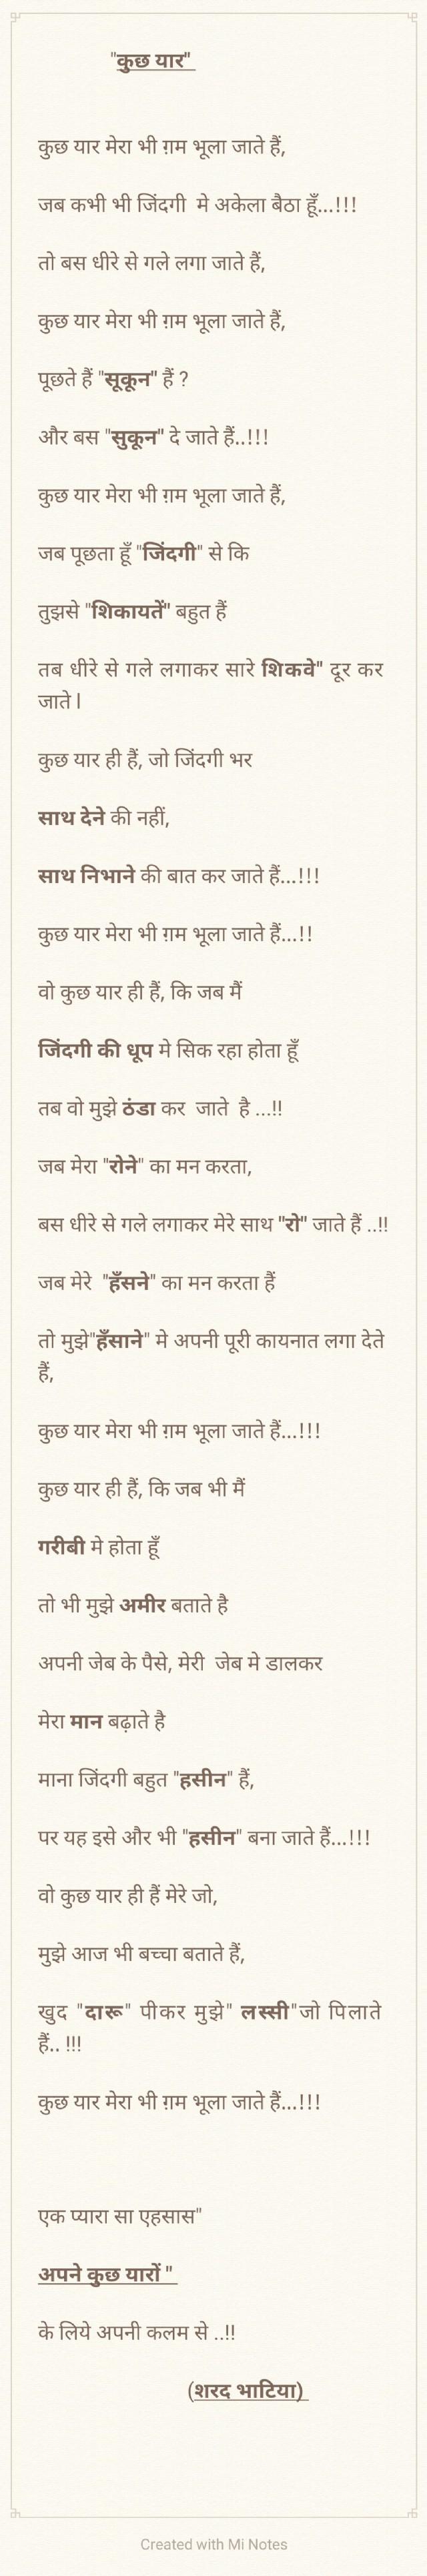 "कुछ यार"
कुछ यार मेरा भी ग़म भूला जाते हैं,
जब कभी भी जिंदगी मे अकेला बैठा हूँ...!!!
तो बस धीरे से गले लगा जाते हैं,
कुछ यार मेरा भी ग़म भूला जाते हैं,
पूछते हैं "सूकून" हैं ?
और बस "सुकून" दे जाते हैं..!!!
कुछ यार मेरा भी ग़म भूला जाते हैं,
जब पूछता हूँ "जिंदगी" से कि
तुझसे "शिकायतें" बहुत हैं
तब धीरे से गले लगाकर सारे शिकवे" दूर कर
जाते l
कुछ यार ही हैं, जो जिंदगी भर
साथ देने की नहीं,
साथ निभाने की बात कर जाते हैं...!!!
कुछ यार मेरा भी ग़म भूला जाते हैं...!!
वो कुछ यार ही हैं, कि जब मैं
जिंदगी की धूप मे सिक रहा होता हूँ
तब वो मुझे ठंडा कर जाते है ...!!
जब मेरा "रोने" का मन करता,
बस धीरे से गले लगाकर मेरे साथ "रो" जाते हैं ..!!
जब मेरे "हँसने" का मन करता हैं
तो मुझे"हँसाने" मे अपनी पूरी कायनात लगा देते
हैं,
कुछ यार मेरा भी ग़म भूला जाते हैं...!!!
कुछ यार ही हैं, कि जब भी मैं
गरीबी मे होता हूँ
तो भी मुझे अमीर बताते है
अपनी जेब के पैसे, मेरी जेब मे डालकर
मेरा मान बढ़ाते है
माना जिंदगी बहुत "हसीन" हैं,
पर यह इसे और भी "हसीन" बना जाते हैं...!!!
वो कुछ यार ही हैं मेरे जो,
मुझे आज भी बच्चा बताते हैं,
खुद "दारू" पीकर मुझे" लस्सी"जो पिलाते
हैं.. !!!
कुछ यार मेरा भी ग़म भूला जाते हैं...!!!
एक प्यारा सा एहसास"
अपने कुछ यारों "
के लिये अपनी कलम से ..!!
(शरद भाटिया)
Created with Mi Notes